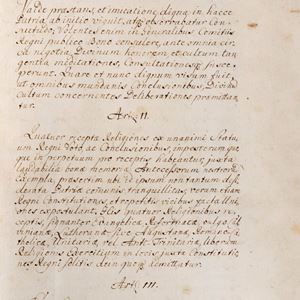 Valde præstans, et imitatione digna in hacce
Patria ab initio viguit, atq observabatur Con-
suetudo, Volentes enim in Generalibus Comitiis
Regni publico Bono consulere, ante omnia cir-
ca negotia, Divinum honorem et cultum tan-
gentia meditationes, Consultationesq susce-
perunt. Quare et nunc dignum visum fuit
ut omnibus mundanis Conclusionibus, Divinum
Cultum concernentes Deliberationes, præmittan-
tur.
Art: II.
Quatuor recepta Religiones ex unanimi Statu-
um Regni Voto ac Conclusionibus, imposterum quo-
que in perpetuum pro receptis habeantur, juxta
laudabilia bona memoria Antecessorum nostrorum
Exempla, præsertim ubi id ipsum non tantum desi-
derata Patriæ communis tranquillitas, verum etiam
Regni Constitutiones, et repetitis vicibus facta Uni-
ones expostulant. His quatuor Religionibus re-
ceptis, signanter: Evangelica Reformata, vulgo Cal-
viniana, Lutherana sive Augustana, Romano-Ca-
tholica, Unitaria, vel Anti-Trinitaria, liberum
Religionis Exercitium in locis juxta Constitutio-
nes Regni solitis deinceps admittatur.
Art: III.